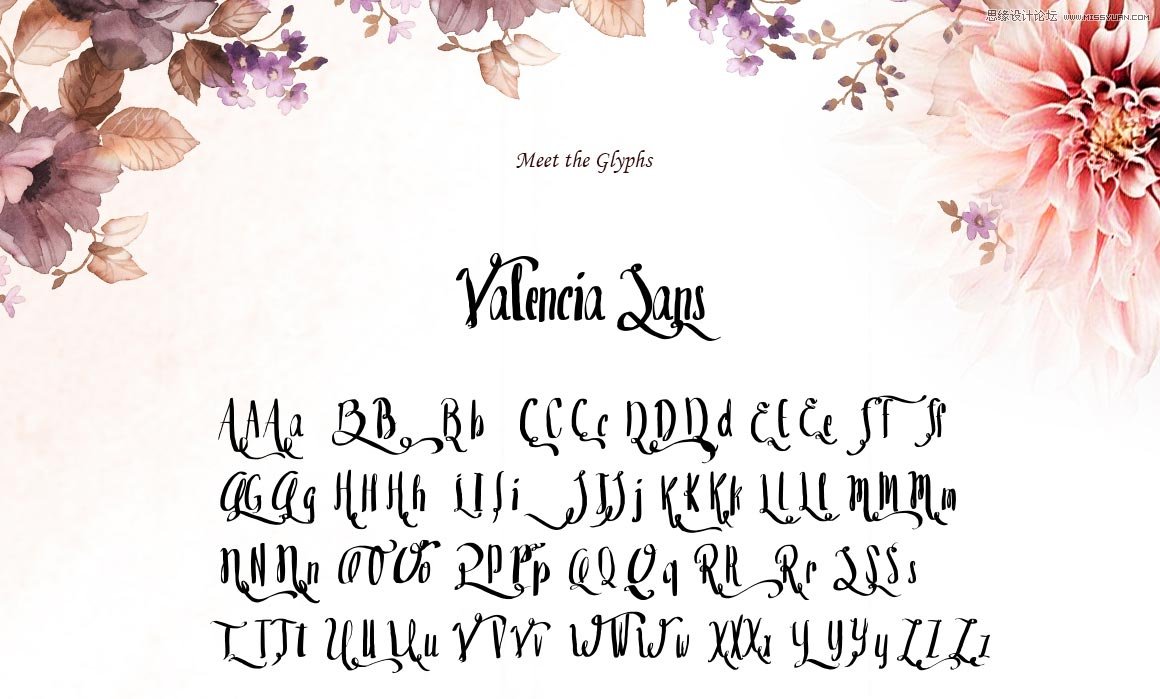 思缘设计论坛 WWW.MISSYUAN.COM
Meet the Glyphs
Valencia Sans
AAAa BB Bb CCCc DDDd EEEe FF Ff
GGGg HHHh IIIi JJJj KKKk LLLl MMMm
NNNn OOOo PPPp QQQq RR Rr SSSs
TTTt UUUu VVVv WWWw XXXx YYYy ZZZz